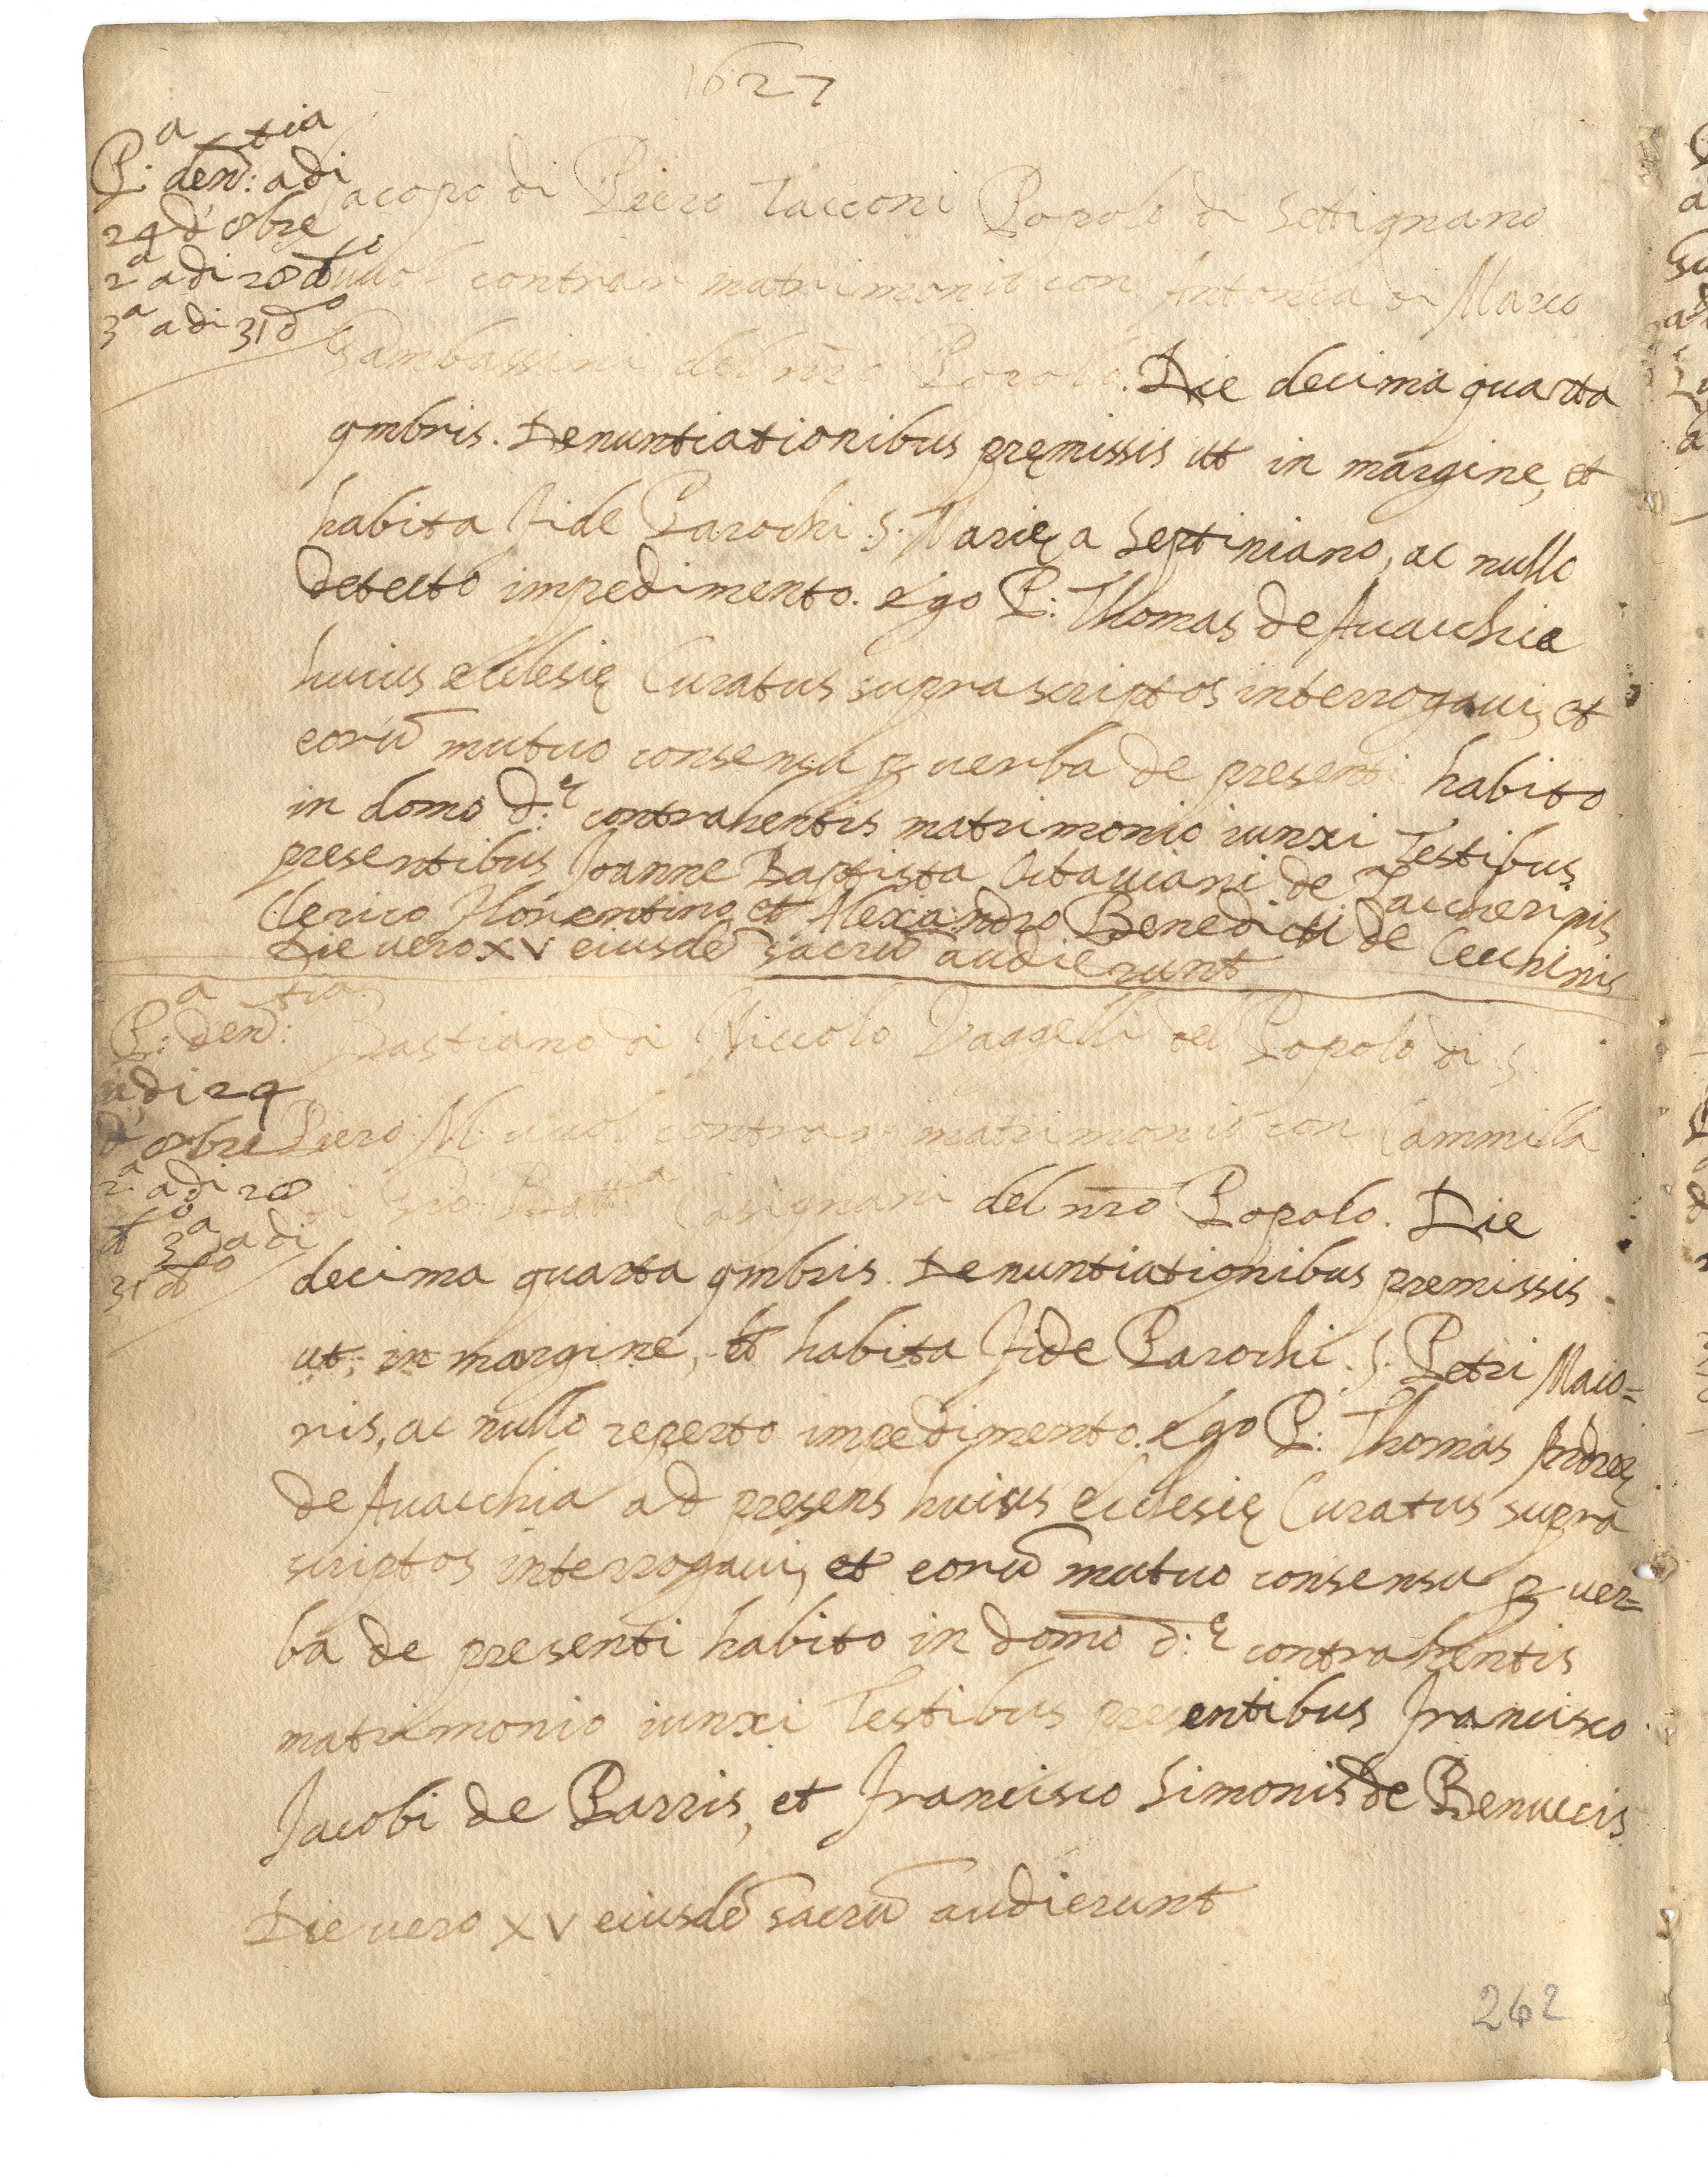 1627
P.a den:tia adi
24 d' 8bre
2a adi 28 do
3a adi 31 do
Jacopo di Piero Tacconi Popolo di Settignano
vuol contrar matrimonio con Antonia di Marco
Gambassini del nro Popolo. Die decima quarta
9mbris. Denuntiationibus pręmissis ut in margine, et
habita fide Parochi S. Marię a Septiniano, ac nullo
detecto impedimento. Ego P: Thomas de Avacchia
huius ecclesię Curatus suprascriptos interrogavi, et
eorū mutuo consensu p verba de presenti habito
in domo d:ę contrahentis matrimonio iunxi Testibus
presentibus Joanne Baptista Octaviani de Zaccherinis
Clerico Florentino, et Alexandro Benedicti de Cecchinis
Die vero XV eiusdē sacrū audierunt
P:a den:tia
adi 24
d' 8bre
2a adi 28
do 3a adi
31 do
Bastiano di Niccolo Vaggelli del Popolo di S.
Piero M. vuol contrar matrimonio con Cammilla
di Gio: Batta Casignani del nro Popolo. Die
decima quarta 9mbris. Denuntiationibus premissis
ut in margine, et habita fide Parochi S. Petri Maio=
ris, ac nullo reperto impedimento. Ego P: Thomas Andreę
de Avacchia ad presens huius ecclesię Curatus supra
scriptos interrogavi, et eorū mutuo consensu p ver=
ba de presenti habito in domo d:ę contrahentis
matrimonio iunxi Testibus presentibus Francisco
Jacobi de Parris, et Francisco Simonis de Benuccis
Die vero XV eiusdē sacrū audierunt
262